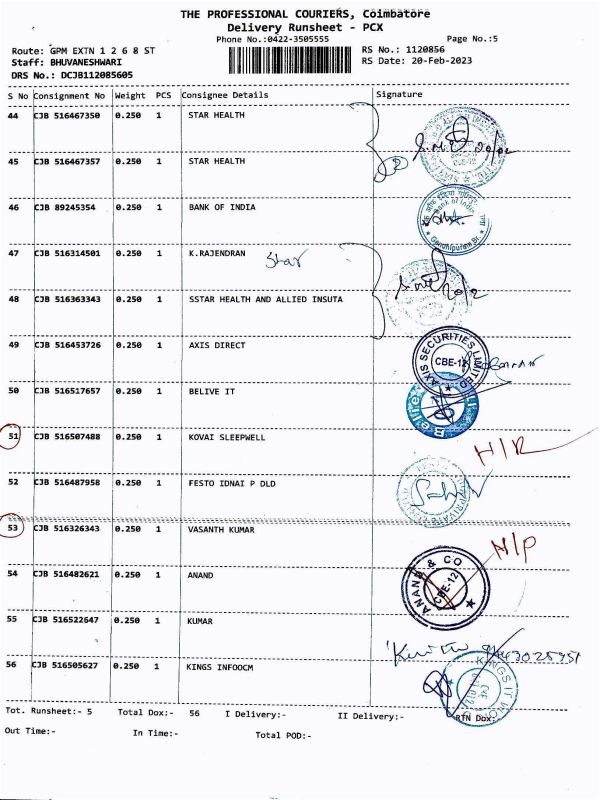 THE PROFESSIONAL COURIERS, Coimbatore
Delivery Runsheet - PCX
Phone No.:0422-3505555 Page No.:5
Route: GPM EXTN 1 2 6 8 ST RS No.: 1120856
Staff: BHUVANESHWARI RS Date: 20-Feb-2023
DRS No.: DCJB112085605
S No Consignment No Weight PCS Consignee Details Signature
44 CJB 516467350 0.250 1 STAR HEALTH
45 CJB 516467357 0.250 1 STAR HEALTH
20/02
46 CJB 89245354 0.250 1 BANK OF INDIA
Bank of India
Gandhipuram Br.
47 CJB 516314501 0.250 1 K.RAJENDRAN Star
48 CJB 516363343 0.250 1 SSTAR HEALTH AND ALLIED INSUTA
20/2
49 CJB 516453726 0.250 1 AXIS DIRECT
AXIS SECURITIES LIMITED
CBE-12
50 CJB 516517657 0.250 1 BELIVE IT
51 CJB 516507488 0.250 1 KOVAI SLEEPWELL
52 CJB 516487958 0.250 1 FESTO IDNAI P DLD
53 CJB 516326343 0.250 1 VASANTH KUMAR
54 CJB 516482621 0.250 1 ANAND
ANAND & CO
CBE-12
55 CJB 516522647 0.250 1 KUMAR
56 CJB 516505627 0.250 1 KINGS INFOOCM
Tot. Runsheet:- 5 Total Dox:- 56 I Delivery:- II Delivery:- RTN Dox:-
Out Time:- In Time:- Total POD:-